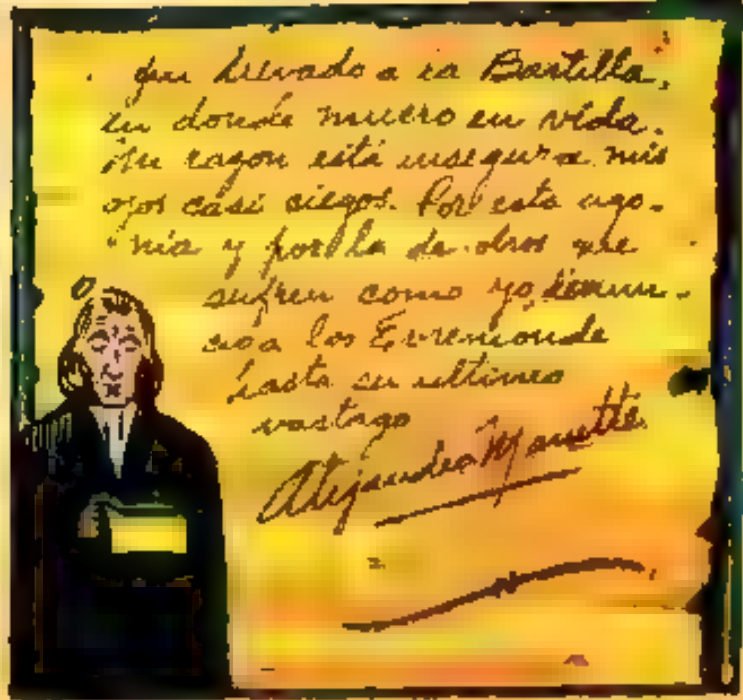 fui llevado a la Bastilla,
en donde muero en vida.
Mi razon está insegura mis
ojos casi ciegos. Por esta ago-
nia y por la de otros que
sufren como yo, denun-
cio a los Evremonde
hasta su ultimo
vastago
Alejandro Manette